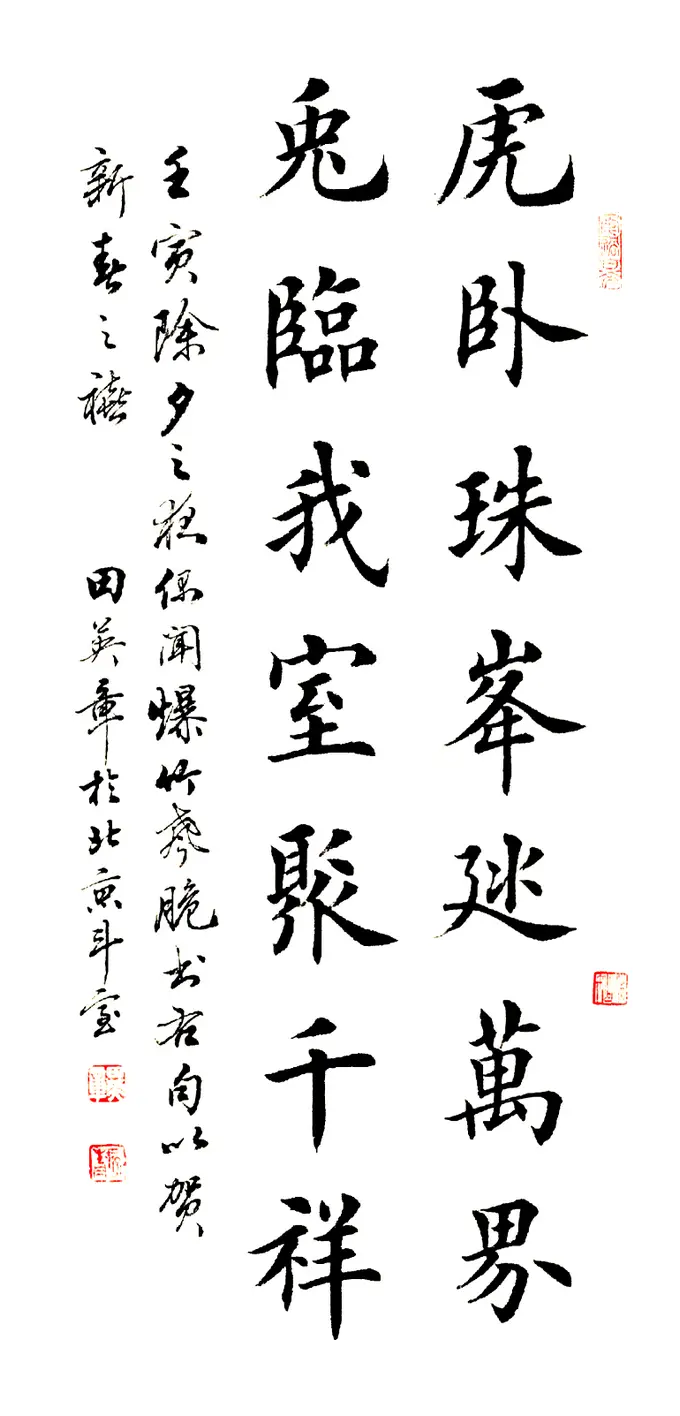 虎卧珠峯廵萬界
兔臨我室聚千祥
壬寅除夕之夜偶聞爆竹聲脆書右句以賀
新春之禧 田英章於北京斗室